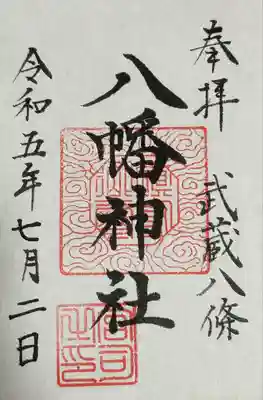 奉拝
武蔵八條
八幡神社
令和五年七月二日